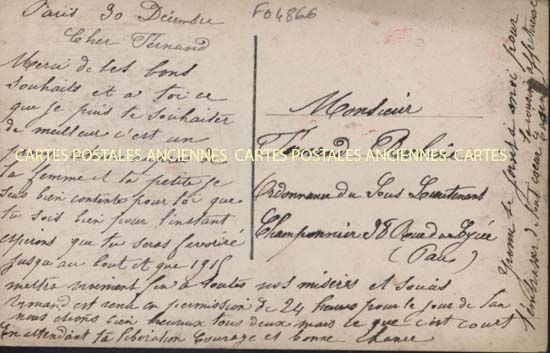 Paris 30 Décembre
F04866
Cher Fernand
Merci de tes bons
souhaits et a toi ce
que je puis te souhaiter
de meilleur c'est un
CARTES POSTALES ANCIENNES CARTES POSTALES ANCIENNES CARTES
ta femme et ta petite je
suis bien contente pour toi que
tu sois bien pour l'instant
espérons que tu seras favorisé
jusqu'au bout et que 1915
mettra vivement fin à toutes nos misères et soucis
est venu en permission de 24 heures pour le jour de l'an
nous étions bien heureux tous deux mais ce que c'est court
En attendant ta libération Courage et bonne chance
Monsieur
Fernand
Ordonnance du Sous Lieutenant
Champonnier 98 Rue du Lycée
(Paris)
se joint à moi pour
t'embrasser de tout coeur